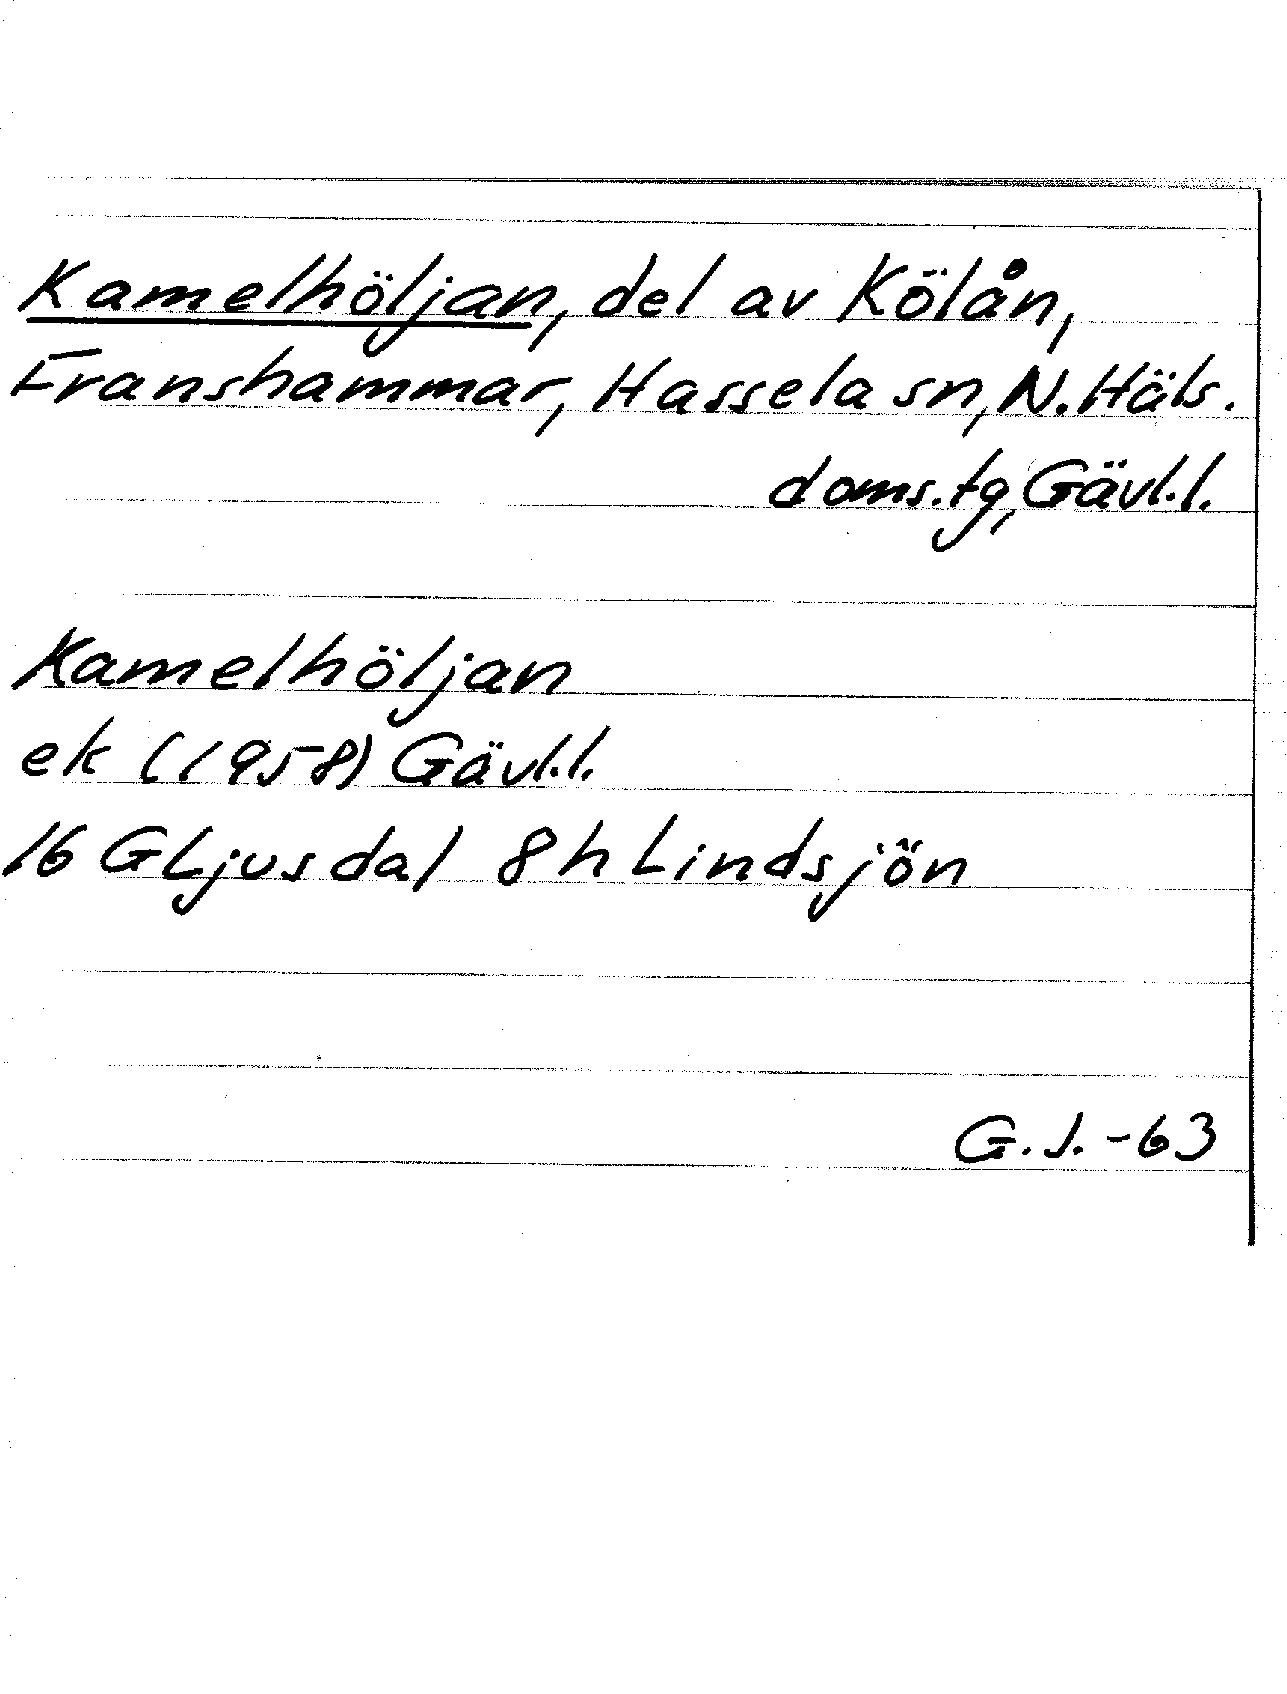 Kamelhöljan, del av Kölån,
Franshammar, Hassela sn, N. Häls.
doms.tg, Gävl.l.
Kamelhöljan
ek (1958) Gävl.l.
16 G Ljusdal 8h Lindsjön
G.J.-63